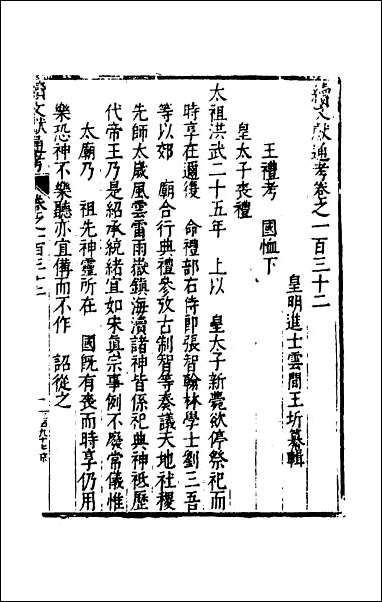 續文獻通考卷之一百三十二
皇明進士雲間王圻纂輯
王禮考 國恤下
皇太子喪禮
太祖洪武二十五年 上以 皇太子新薨欲停祭祀而
時享在邇復 命禮部右侍郎張智翰林學士劉三吾
等以郊 廟合行典禮參攷古制智等奏議天地社稷
先師太歲風雲雷雨嶽鎮海瀆諸神皆係祀典神祗歷
代帝王乃是紹承統緒宜如宋真宗事例不廢常儀惟
太廟乃 祖先神靈所在 國既有喪而時享仍用
樂恐神不樂聽亦宜備而不作 詔從之
續文獻通考 卷之一百三十二 一